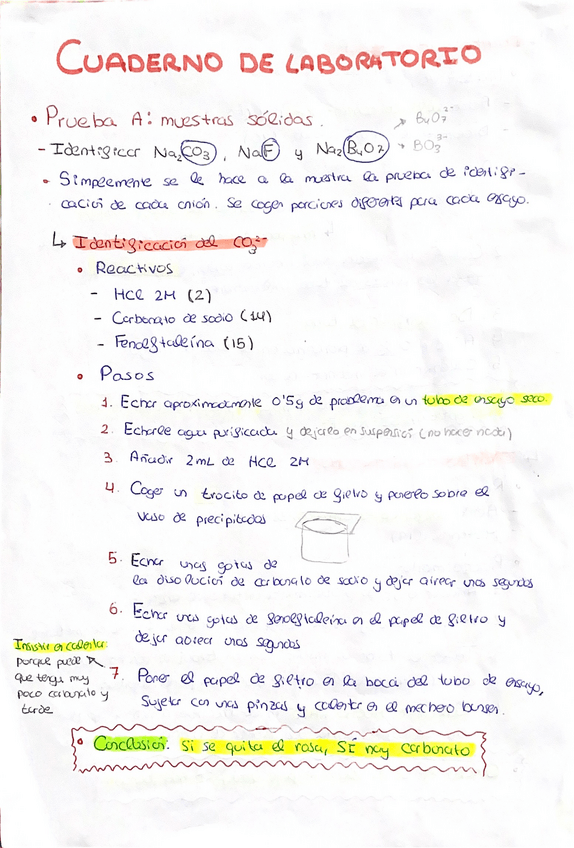 CUADERNO DE LABORATORIO
• Prueba A: muestras sólidas.
→ B₄O₇²⁻
- Identificar Na₂CO₃, NaF y Na₂B₄O₇ → BO₃³⁻
• Simplemente se le hace a la muestra la prueba de identifi-
cación de cada anión. Se coger porciones diferentes para cada ensayo.
↳ Identificación del CO₃²⁻
• Reactivos
- HCl 2M (2)
- Carbonato de sodio (14)
- Fenolftaleína (15)
• Pasos
1. Echar aproximadamente 0'5g de problema en un tubo de ensayo seco.
2. Echarle agua purificada y dejarlo en suspensión (no hacer nada)
3. Añadir 2mL de HCl 2M
4. Coger un trocito de papel de filtro y ponerlo sobre el
vaso de precipitados
5. Echar unas gotas de
la disolución de carbonato de sodio y dejar airear unos segundos
6. Echar unas gotas de fenolftaleína en el papel de filtro y
dejar airear unos segundos
7. Poner el papel de filtro en la boca del tubo de ensayo,
sujetar con unas pinzas y calentar en el mechero bunsen.
Insistir en calentar:
porque puede
que tenga muy
poco carbonato y
tarde
• Conclusión: si se quita el rosa, SÍ hay carbonato